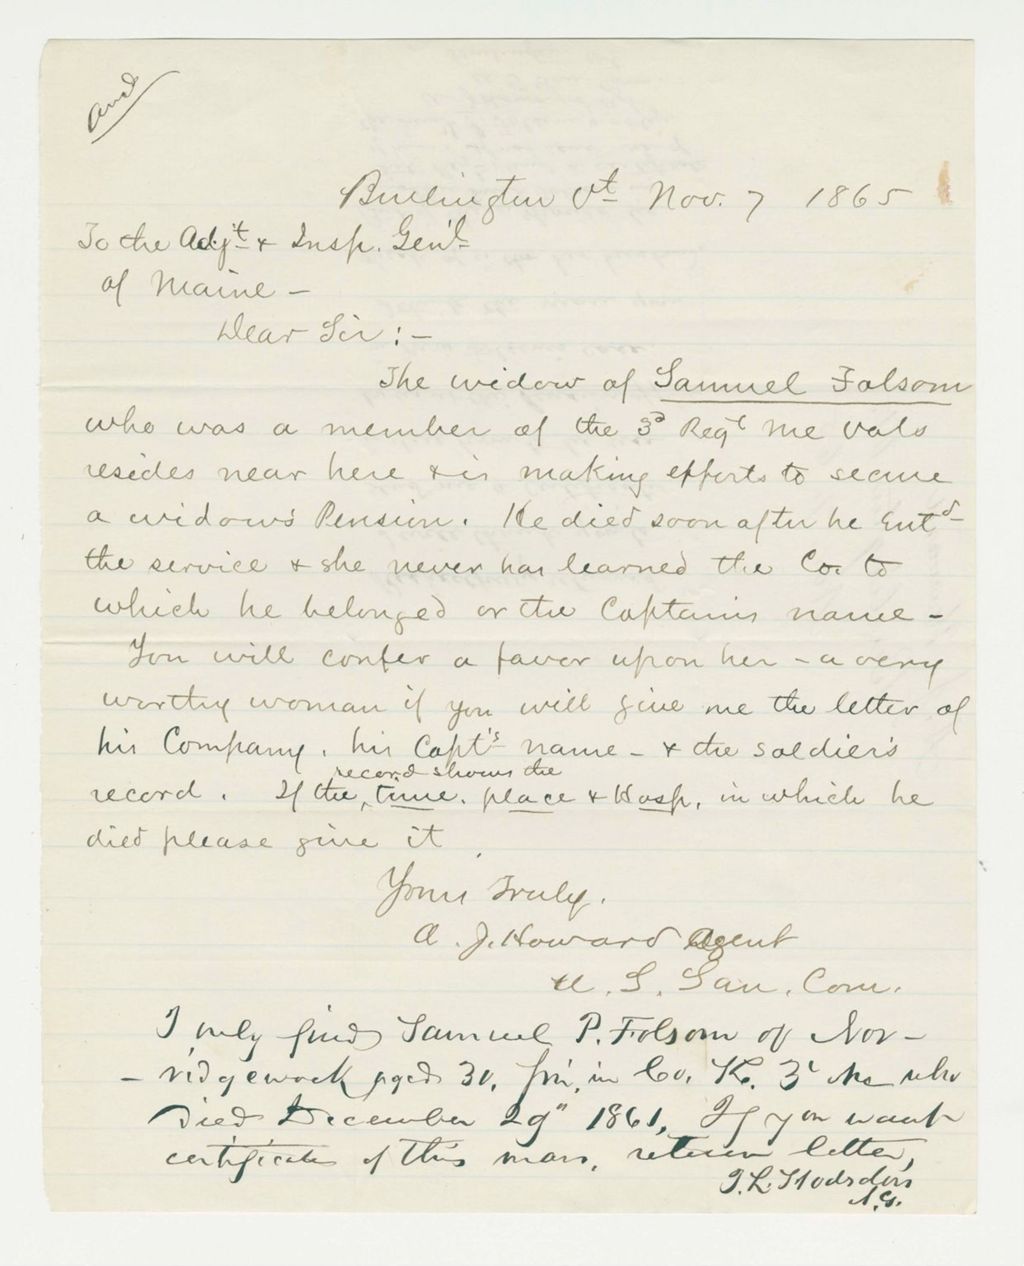 and
Burlington Vt Nov. 7 1865
To the Adjt & Insp. Gen'l
of Maine –
Dear Sir : –
The widow of Samuel Folsom
who was a member of the 3d Regt Me Vols
resides near here & is making efforts to secure
a widow's Pension. He died soon after he Entd
the service & she never has learned the Co. to
which he belonged or the Captains name –
You will confer a favor upon her – a very
worthy woman if you will give me the letter of
his Company, his Capt's name – & the soldier's
record. If the record shows the time, place & Hosp. in which he
died please give it.
Yours Truly,
A. J. Howard Agent
U. S. San. Com.
I only find Samuel P. Folsom of Nor-
-ridgewock aged 30, in Co. K. 3d Me who
died December 29" 1861, If you want
certificate of this man, return letter,
J. L. Hodsdon
A. G.